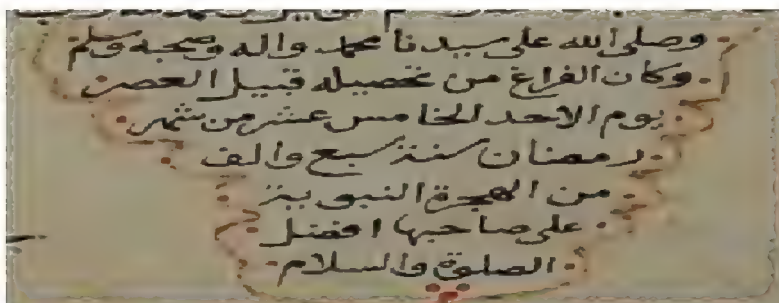 وصلى الله على سيدنا محمد واله وصحبه وسلم
وكان الفراغ من تحصيله قبيل العصر
يوم الاحد الخامس عشر من شهر
رمضان سنة سبع والف
من الهجرة النبوية
على صاحبها افضل
الصلوة والسلام